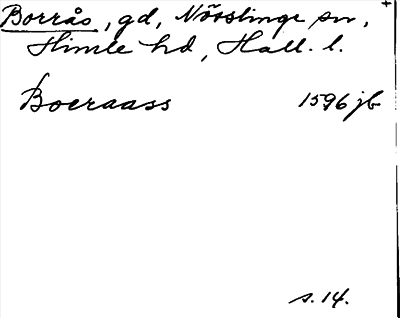 Borrås, gd, Nösslinge sn,
Himle hd, Hall. l.
Boeraass 1596 jb
s. 14.